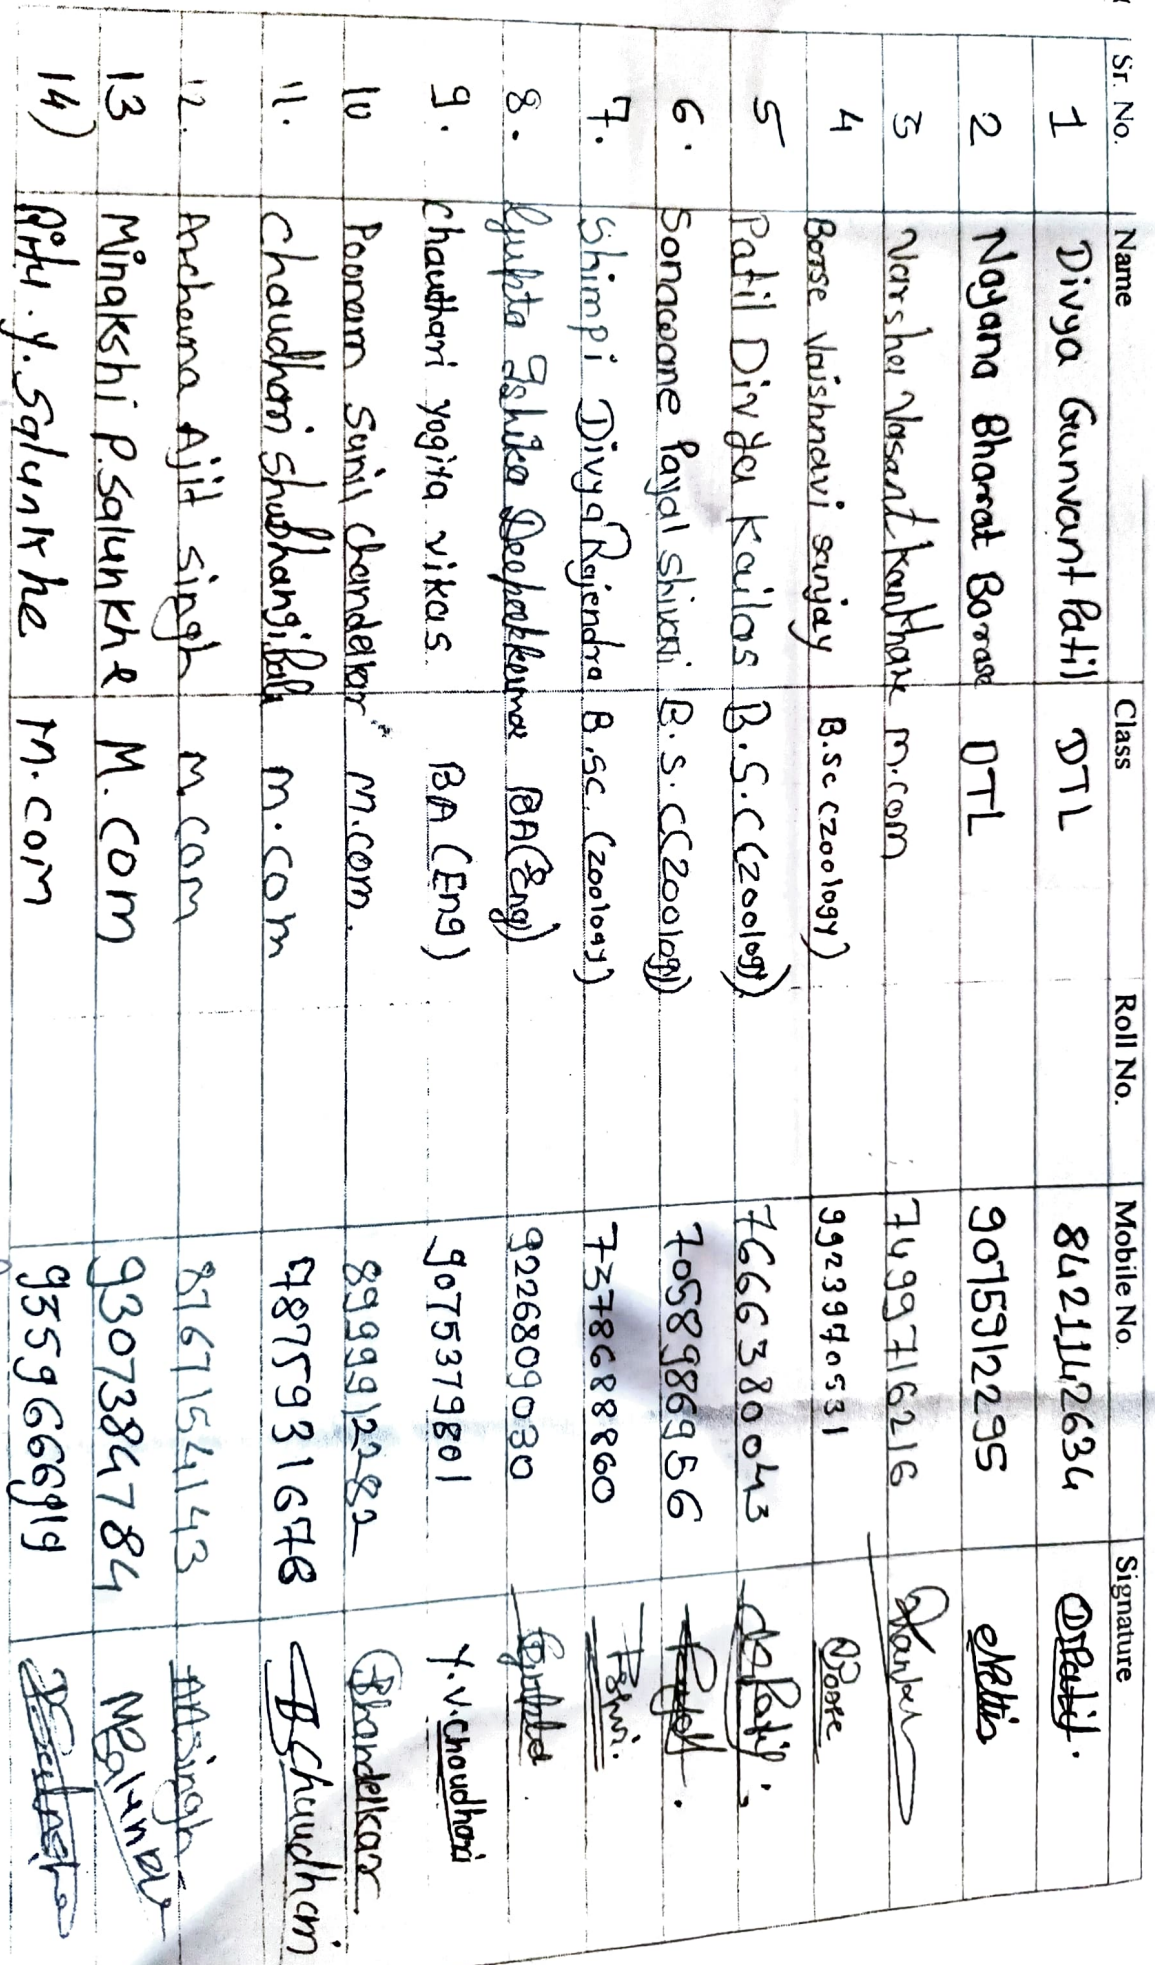 Sr. No. Name Class Roll No. Mobile No. Signature
1 Divya Gunvant Patil DTL 8421142634 DPatil.
2 Nayana Bharat Borase DTL 9075912295
3 Varsha Vasant Kanthare m.com 7499716216
4 Borse Vaishnavi sanjay B.sc (zoology) 9923970531
5 Patil Divya Kailas B.S.C (zoology) 7666380043
6. Sonawane Payal shivaji B.S.C (zoology) 7058986956
7. Shimpi Divya Rajendra B.sc. (zoology) 7378688860
8. Gupta Ishika Deepakkumar BA (Eng) 9226809030
9. chaudhari yogita vikas. BA (Eng) 9075379801 Y.V.choudhari
10 Poonam sunil chandelkar m.com. 8999912282
11. Chaudhari Shubhangi m.com 7875931678
12. Archana Ajit singh m.com 8767154143 Asingh
13 Minakshi P. Salunkhe M. COM 9307384784
14) Y. Salunkhe M. com